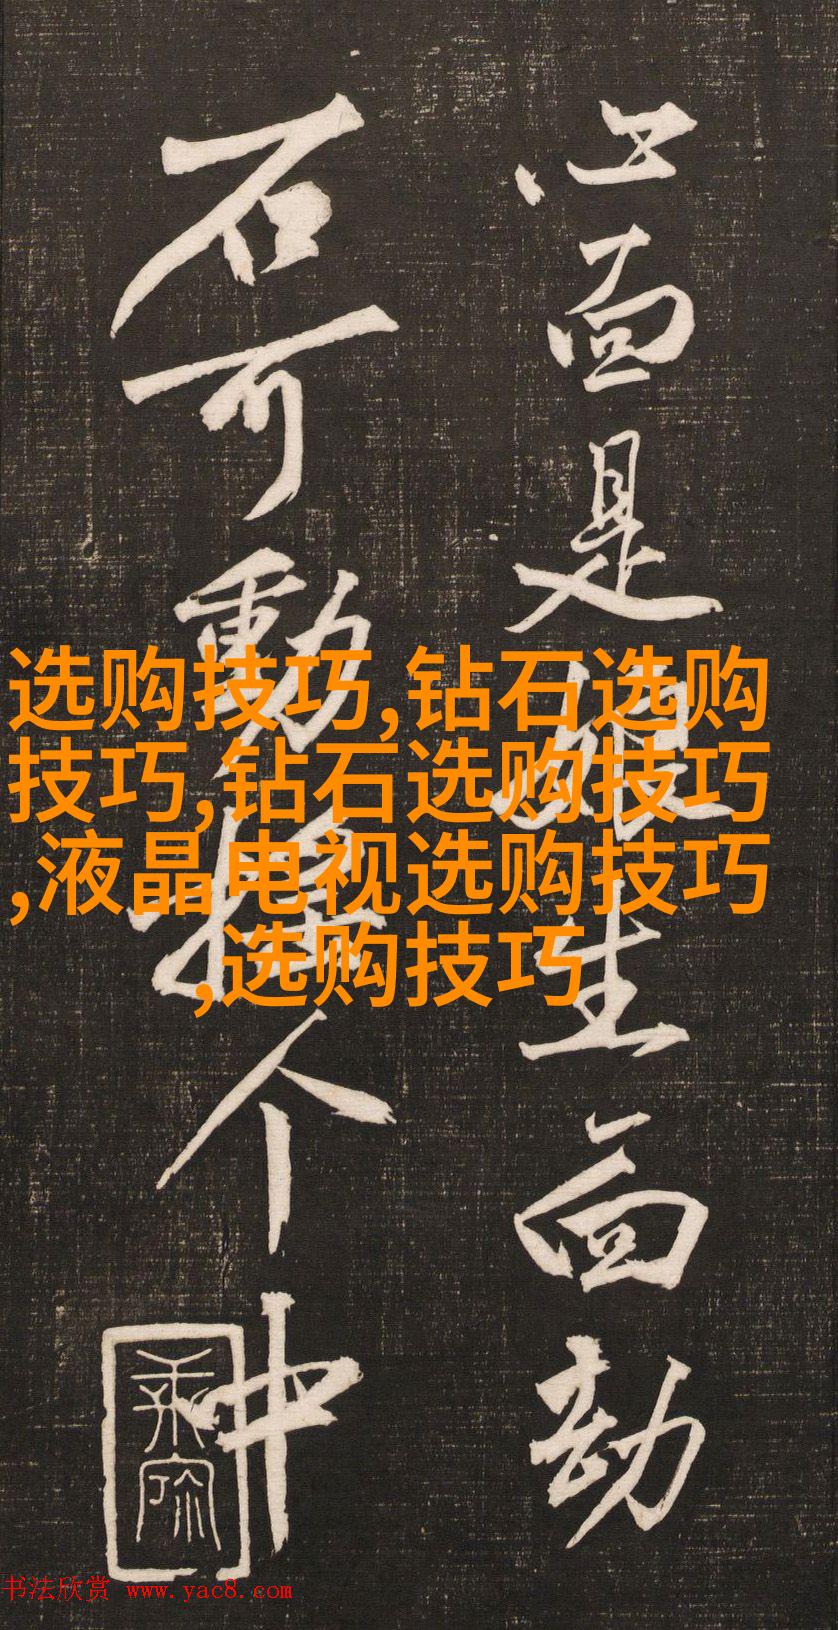 面是娘生面劫
石可動搖个中
选购技巧,钻石选购
技巧,钻石选购技巧
,液晶电视选购技巧
,选购技巧
书法欣赏 www.yac8.com